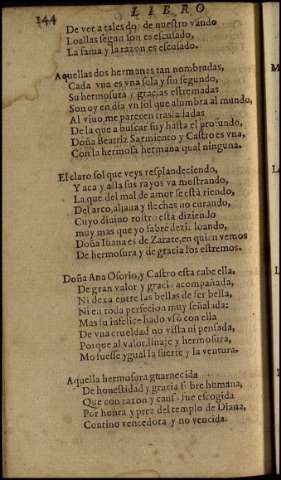 144 LIBRO
De ver a tales dos de nuestro vando
Loallas segun son es escusado,
La fama y la razon es escusado.
Aquellas dos hermanas tan nombradas,
Cada vna es vna sola y sin segundo,
Su hermosura y gracias estremadas
Son oy en dia vn sol que alumbra al mundo,
Al viuo me parecen trasladadas
De la que a buscar fuy hasta el profundo,
Doña Beatriz Sarmiento y Castro es vna,
Con la hermosa hermana qual ninguna.
El claro sol que veys resplandeciendo,
Y aca y alla sus rayos va mostrando,
La que del mal de amor se està riendo,
Del arco, aljaua y flechas no curando,
Cuyo diuino rostro està diziendo
muy mas que yo sabre dezir, loando,
Doña Iuana es de Zarate, en quien vemos
De hermosura y de gracia los estremos.
Doña Ana Osorio, y Castro està cabe ella,
De gran valor y gracia acompañada,
Ni dexa entre las bellas de ser bella,
Ni en toda perfecion muy señalada:
Mas su infelice hado vsò con ella
De vna crueldad no vista ni pensada,
Porque al valor, linaje y hermosura,
No fuesse ygual la suerte y la ventura.
Aquella hermosura guarnecida
De honestidad y gracia sobre humana,
Que con razon y causa fue escogida
Por honra y prez del templo de Diana,
Contino vencedora y no vencida.